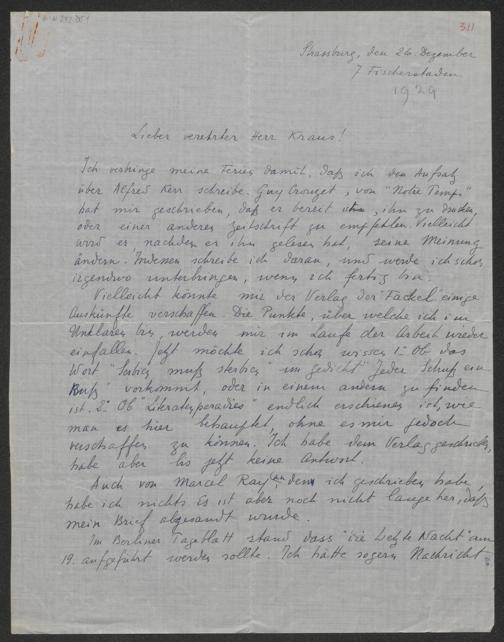 311
Strassburg, den 26. Dezember
7 Fischerstaden
1929
Lieber verehrter Herr Kraus!
Ich verbringe meine Ferien damit, daß ich den Aufsatz
über Alfred Kerr schreibe. Guy Crouzet, von "Notre Temps"
hat mir geschrieben, daß er bereit ihn zu drucken,
oder einer anderen Zeitschrift zu empfehlen. Vielleicht
wird er nachdem er ihn gelesen hat, seine Meinung
ändern. Indessen schreibe ich daran, und werde ich schon
irgendwo unterbringen, wenn ich fertig bin.
Vielleicht könnte mir der Verlag der "Fackel" einige
Auskünfte verschaffen. Die Punkte, über welche ich im
Unklaren bin, werden mir im Laufe der Arbeit wieder
einfallen. Jetzt möchte ich schon wissen 1° Ob das
Wort "Serbien muß sterbien" im Gedicht "Jeder Schuß ein
Ruß" vorkommt, oder in einem andern zu finden
ist. 2° Ob "Literaturparadies" endlich erschienen ist, wie
man es hier behauptet, ohne es mir jedoch
verschaffen zu können. Ich habe dem Verlag geschrieben,
habe aber bis jetzt keine Antwort.
Auch von Marcel Ray, dem ich geschrieben habe,
habe ich nichts. Es ist aber noch nicht lange her, daß
mein Brief abgesandt wurde.
Im Berliner Tageblatt stand dass "die Letzte Nacht" am
19. aufgeführt werden sollte. Ich hatte sogar Nachricht